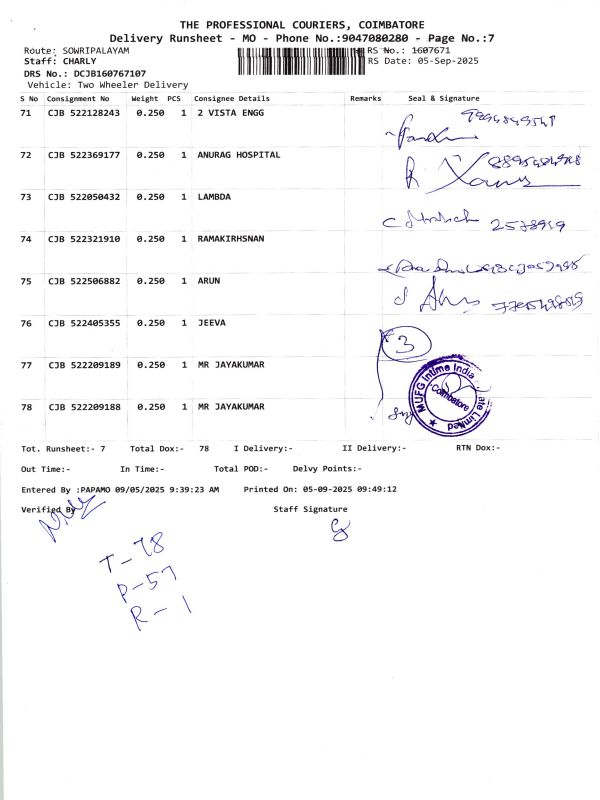 THE PROFESSIONAL COURIERS, COIMBATORE
Delivery Runsheet - MO - Phone No.:9047080280 - Page No.:7
Route: SOWRIPALAYAM RS No.: 1607671
Staff: CHARLY RS Date: 05-Sep-2025
DRS No.: DCJB160767107
Vehicle: Two Wheeler Delivery
S No Consignment No Weight PCS Consignee Details Remarks Seal & Signature
71 CJB 522128243 0.250 1 2 VISTA ENGG
72 CJB 522369177 0.250 1 ANURAG HOSPITAL
73 CJB 522050432 0.250 1 LAMBDA
74 CJB 522321910 0.250 1 RAMAKIRHSNAN
75 CJB 522506882 0.250 1 ARUN
76 CJB 522405355 0.250 1 JEEVA
3
77 CJB 522209189 0.250 1 MR JAYAKUMAR
MUFG Intime India ate Limited
Coimbatore
78 CJB 522209188 0.250 1 MR JAYAKUMAR
Tot. Runsheet:- 7 Total Dox:- 78 I Delivery:- II Delivery:- RTN Dox:-
Out Time:- In Time:- Total POD:- Delvy Points:-
Entered By :PAPAMO 09/05/2025 9:39:23 AM Printed On: 05-09-2025 09:49:12
Verified By Staff Signature
T-78
P-57
R-1